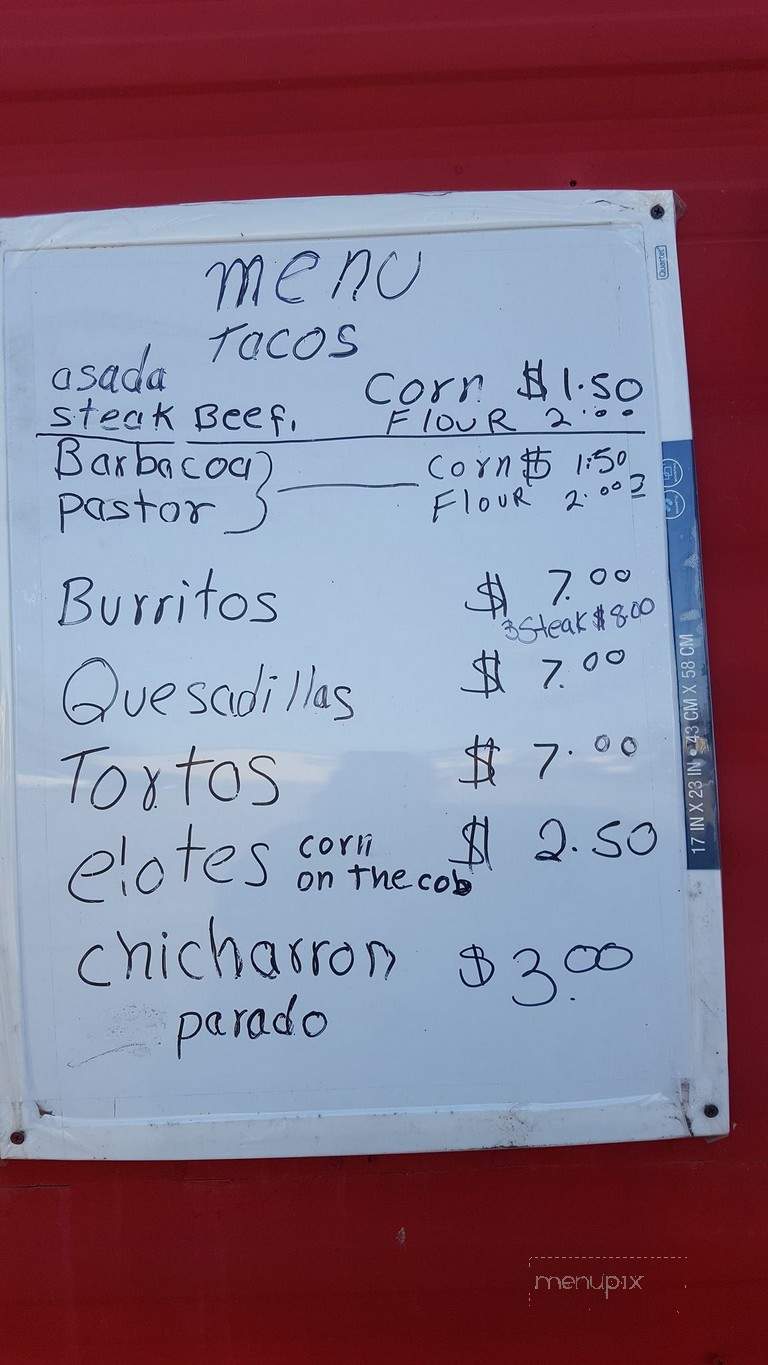 menu
Tacos
asada
Corn $1.50
steak Beef.
FLOUR 2.00
Barbacoa
Corn $ 1:50
Pastor
FLOUR 2.00
Burritos $ 7.00
Steak $8.00
Quesadillas $ 7.00
Tortos $ 7.00
elotes corn $ 2.50
on the cob
chicharron $3.00
parado
Quartet
17 IN X 23 IN • 43 CM X 58 CM
menupix